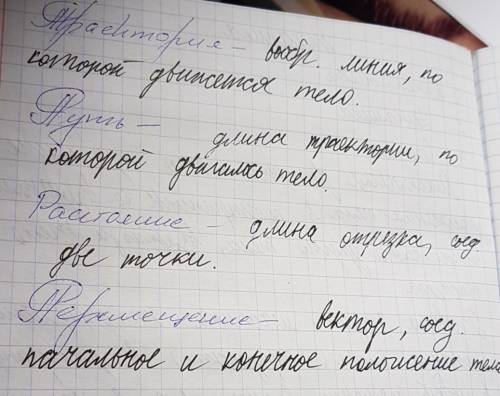 Траектория – вообр. линия, по
которой движется тело.
Путь – длина траектории, по
которой двигалось тело.
Расстояние – длина отрезка, соед.
две точки.
Перемещение – вектор, соед.
начальное и конечное положение тела